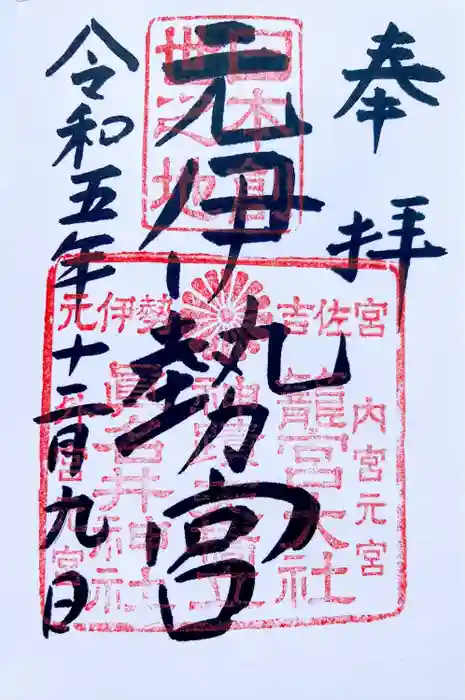 奉拝
元伊勢宮
令和五年十二月九日
日本創
世之地
元伊勢
吉佐宮
内宮元宮
籠宮大社
眞名井神社